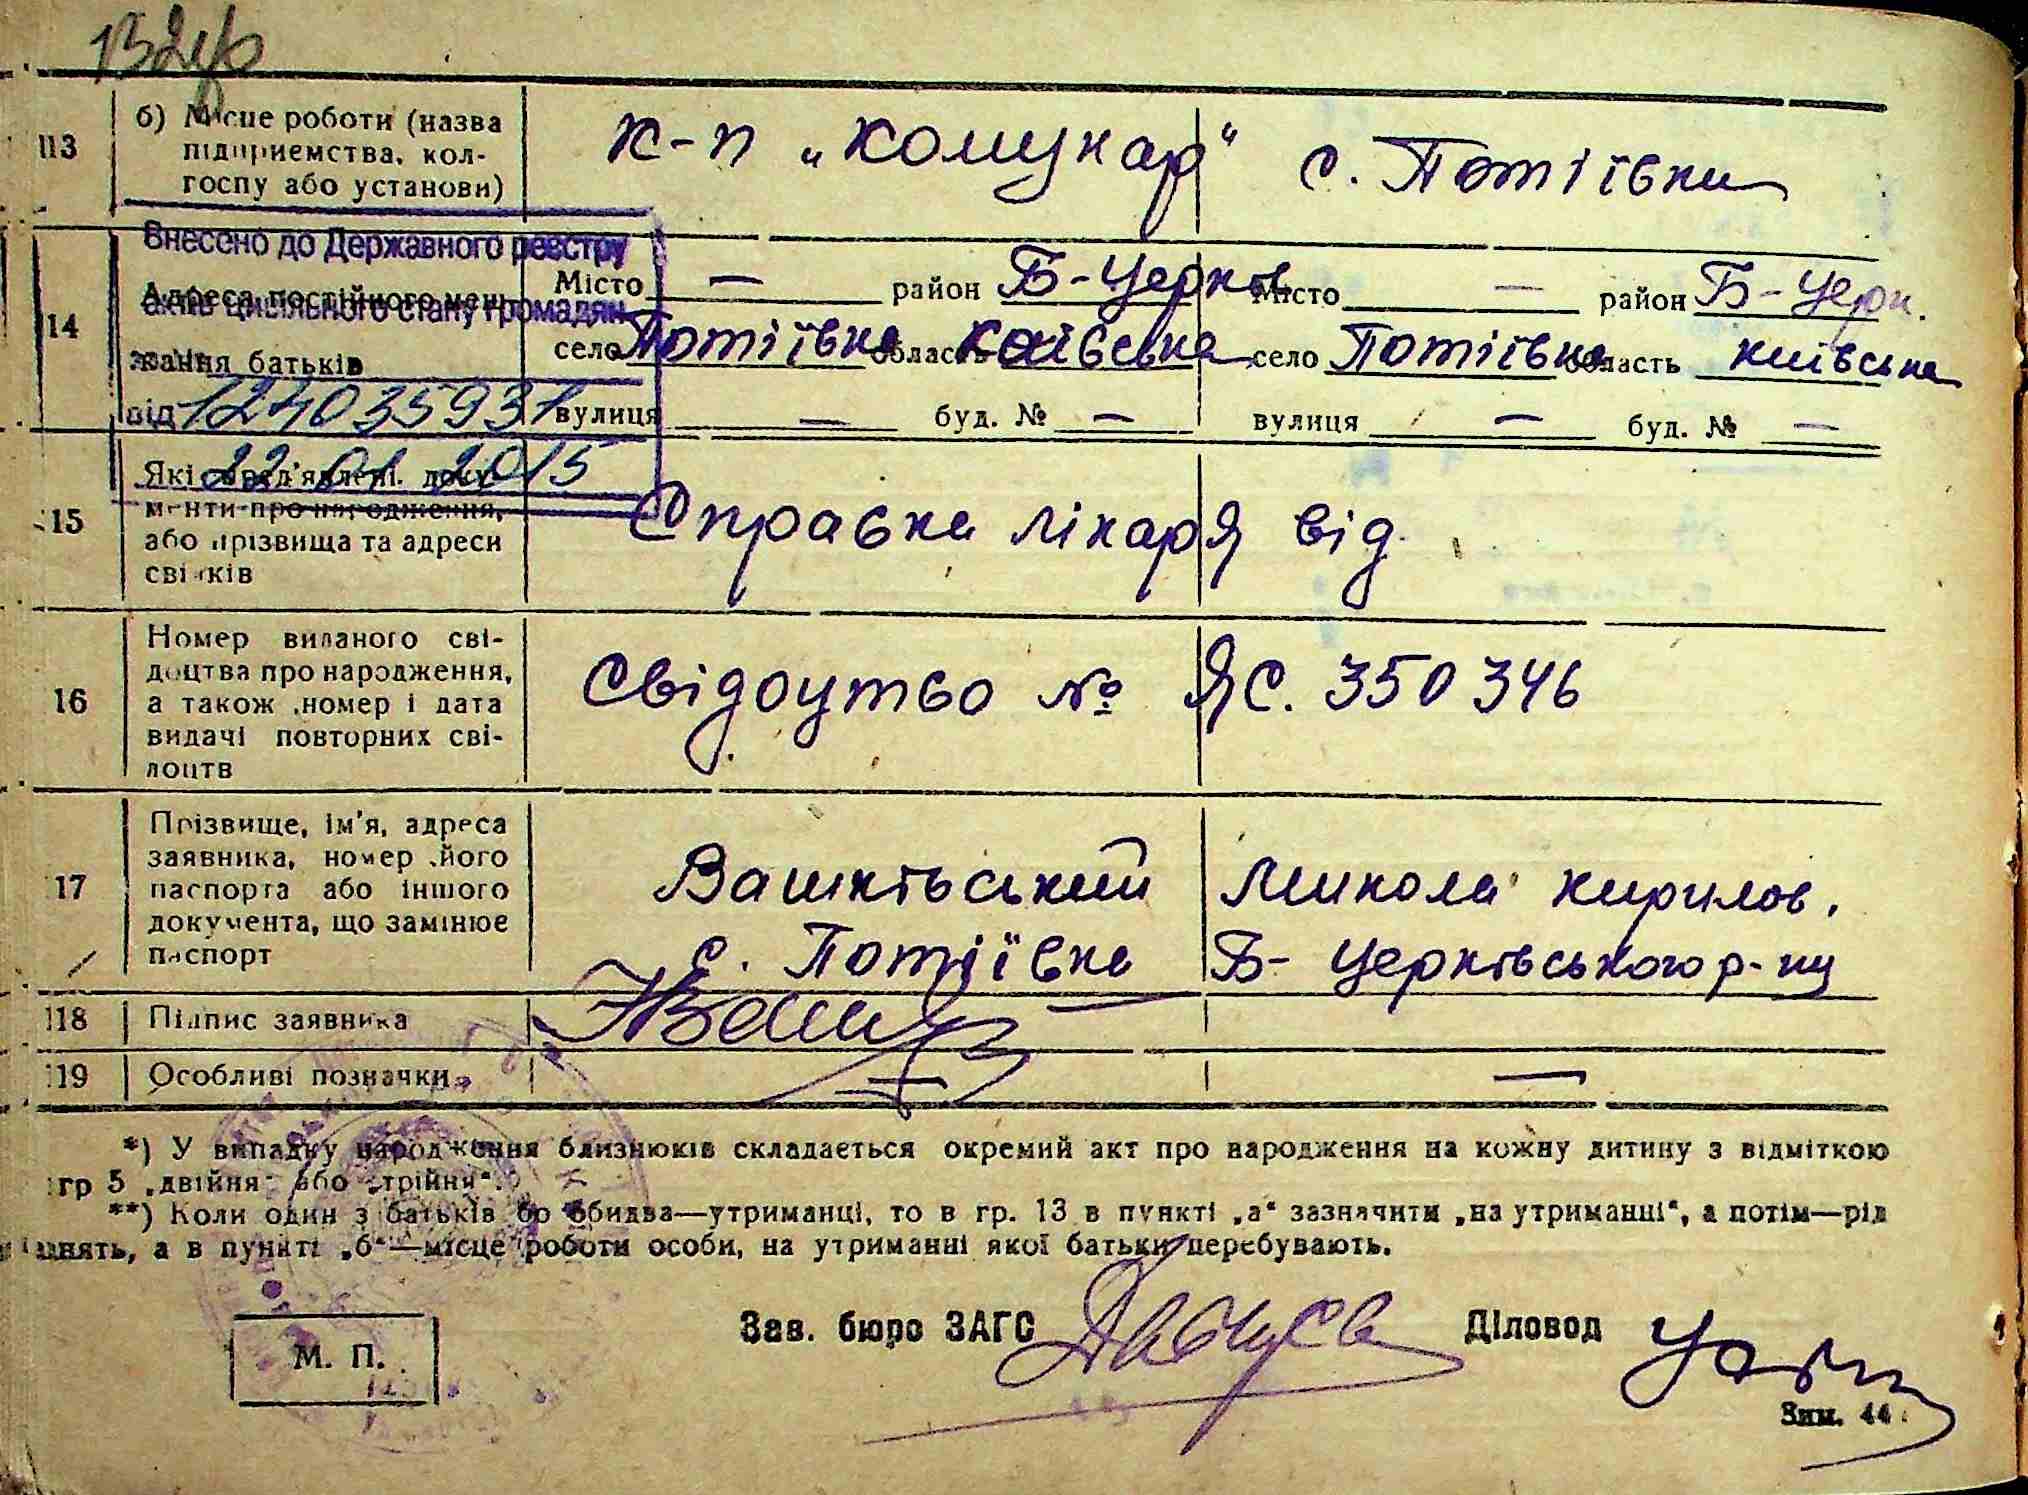 13
б) Місце роботи (назва підприємства, колгоспу або установи)
к-п „Комунар“ с. Потіївки
Внесено до Державного реєстру
актів цивільного стану громадян
від 124035931
22 01 2015
14
Адреса постійного мешкання батьків
Місто — район Б-Церків
село Потіївка область Київська
вулиця — буд. № —
Місто — район Б-Церк.
село Потіївка область Київська
вулиця — буд. № —
15
Які пред'явлені документи про народження, або прізвища та адреси свідків
Справка лікаря від
16
Номер виданого свідоцтва про народження, а також номер і дата видачі повторних свідоцтв
Свідоцтво № ЯС. 350346
17
Прізвище, ім'я, адреса заявника, номер його паспорта або іншого документа, що замінює паспорт
Вашківський Микола Кирилов.
с. Потіївка Б-Церківського р-ну
18
Підпис заявника
19
Особливі позначки
— —
*) У випадку народження близнюків складається окремий акт про народження на кожну дитину з відміткою
гр 5 „двійня“ або „трійня“.
**) Коли один з батьків бо обидва—утриманці, то в гр. 13 в пункті „а“ зазначити „на утриманці“, а потім—рід
занять, а в пункті „б“—місце роботи особи, на утриманні якої батьки перебувають.
Зав. бюро ЗАГС
Діловод
М. П.
Зам. 44